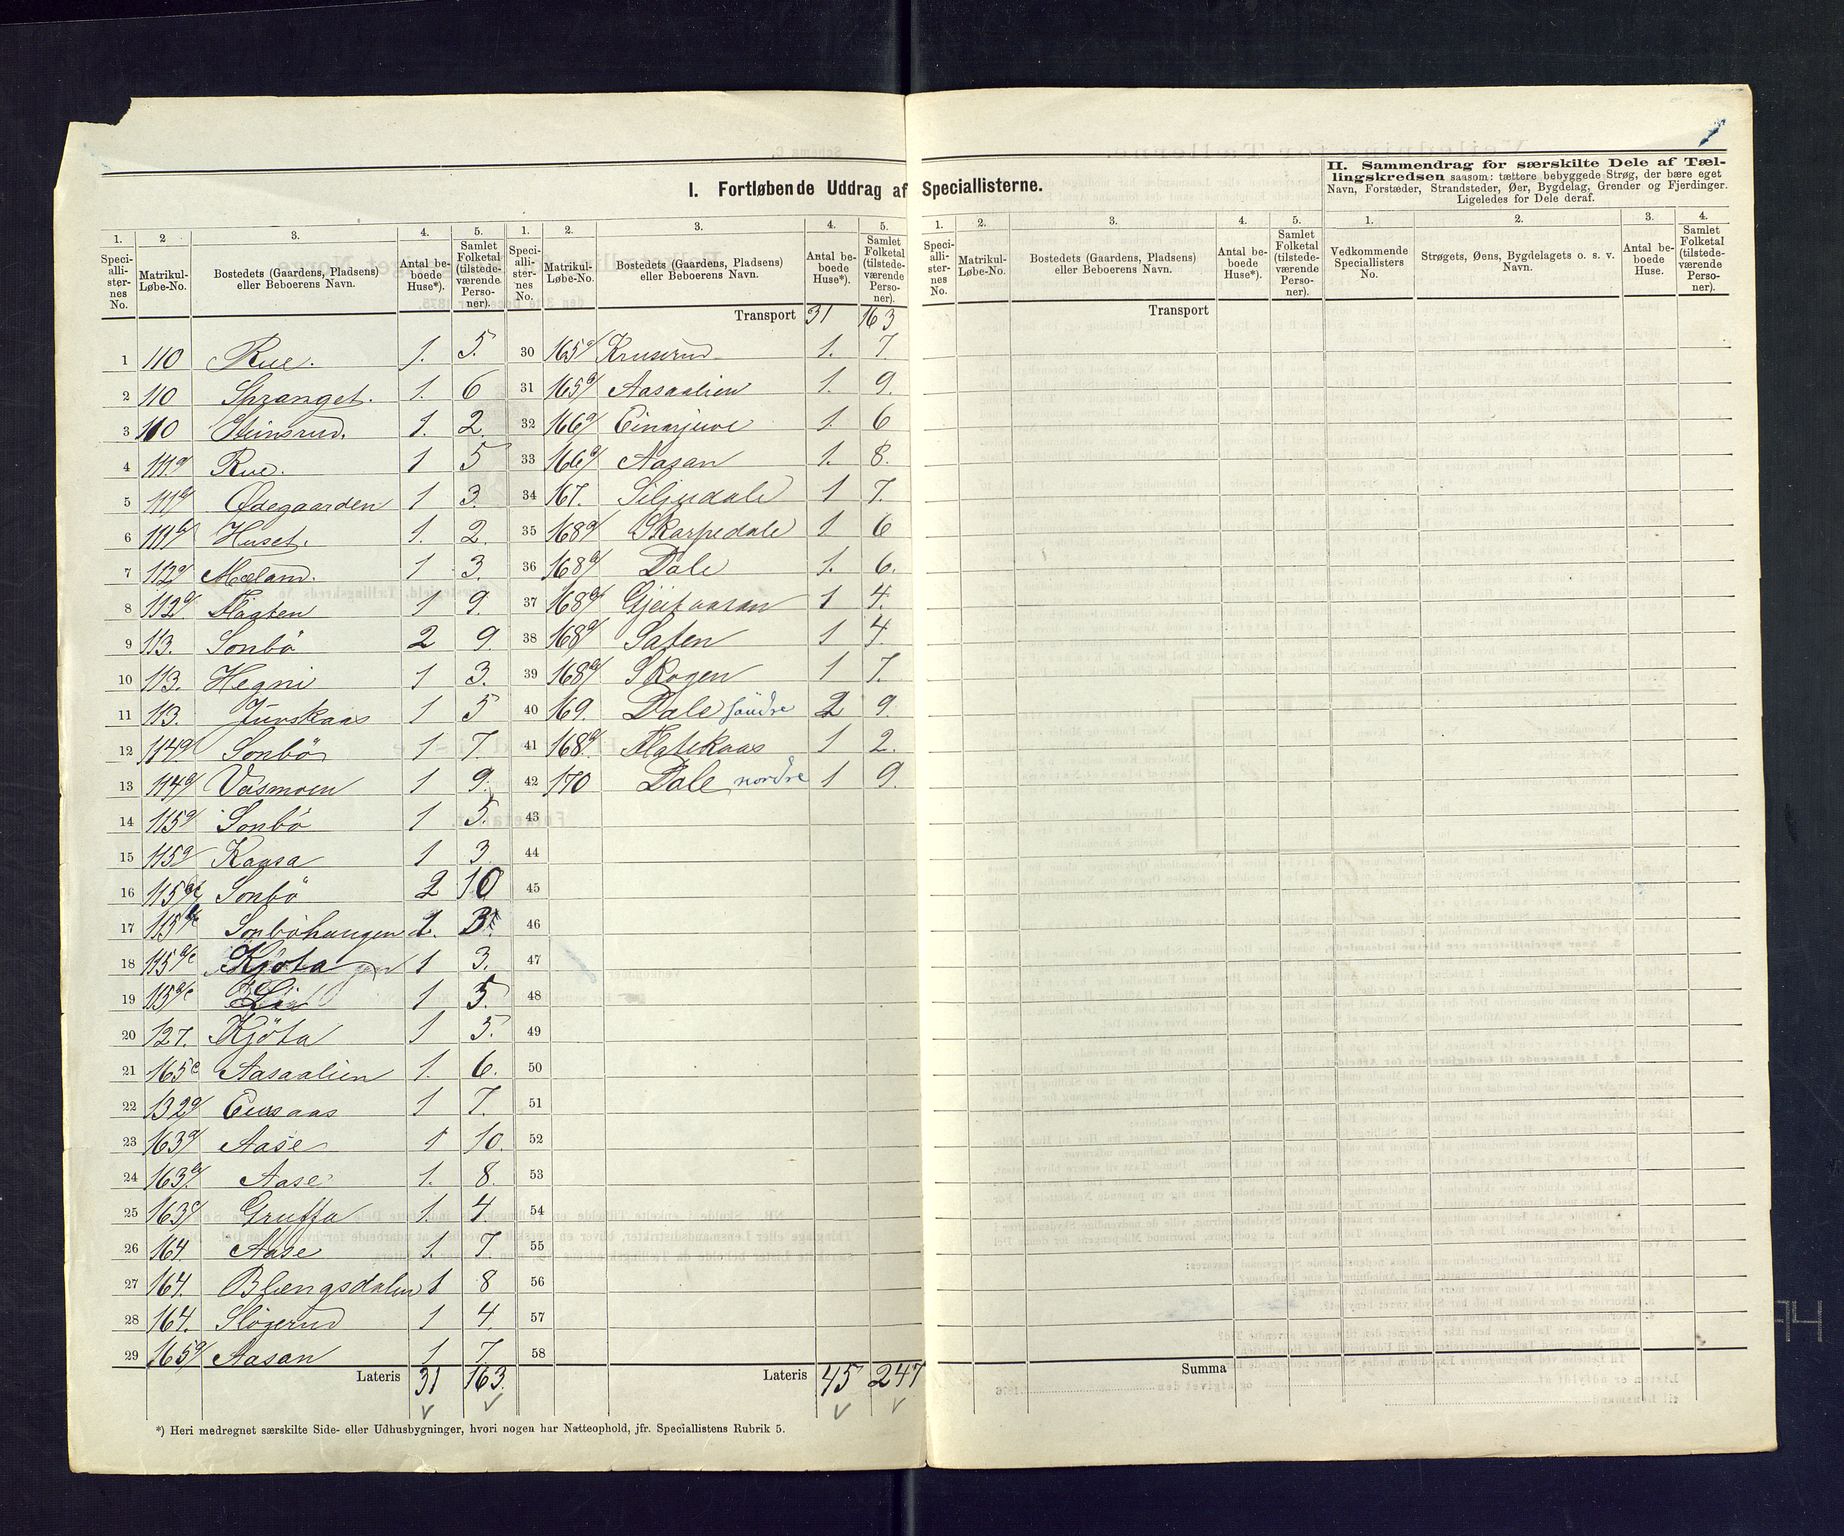 I. Fortløbende Uddrag af Speciallisterne.
II. Sammendrag for særskilte Dele af Tællingskredsen saasom: tættere bebyggede Strøg, der bære eget
Navn, Forstæder, Strandsteder, Øer, Bygdelag, Grender og Fjerdinger.
Ligeledes for Dele deraf.
1. 2 3. 4. 5. 1. 2. 3. 4. 5. 1. 2. 3. 4. 5. 1. 2. 3. 4.
Speciallisternes No. Matrikul-Løbe-No. Bostedets (Gaardens, Pladsens) eller Beboerens Navn. Antal beboede Huse*). Samlet Folketal (tilstedeværende Personer).
Speciallisternes No. Matrikul-Løbe-No. Bostedets (Gaardens, Pladsens) eller Beboerens Navn. Antal beboede Huse*). Samlet Folketal (tilstedeværende Personer).
Speciallisternes No. Matrikul-Løbe-No. Bostedets (Gaardens, Pladsens) eller Beboerens Navn. Antal beboede Huse*). Samlet Folketal (tilstedeværende Personer).
Vedkommende Speciallisters No. Strøgets, Øens, Bygdelagets o. s. v. Navn. Antal beboede Huse. Samlet Folketal (tilstedeværende Personer).
Transport 31 163
Transport
1 110 Rue. 1. 5.
2 110 Spranget. 1. 6
3 110 Steinsrud. 1. 2.
4 111a Rue. 1 5
5 111a Ødegaarden 1 3.
6 111b Huset. 1. 2.
7 112a Mæland. 1 3.
8 112a Flaaten 1 9.
9 113. Sonbö 2 9.
10 113. Hegni 1 3.
11 113. Juvskaas 1 5
12 114a Sonbö 1 7.
13 114a Vasmoen 1 9.
14 115a Sonbö 1 5.
15 115a Kaasa 1 3.
16 115 Sonbö 2 10
17 115 Sonböhaugen 1. 3.
18 115a/c Kjöta 1 3.
19 115a/c 1 5.
20 127. Kjöta 1 5.
21 165c Aasaalien 1. 6.
22 132a 1 7.
23 163a Aase 1 10.
24 163a Aase 1. 8.
25 163c Gruffa 1. 4.
26 164 Aase 1. 7.
27 164. Blengsdalen 1 8
28 164. Slögerud 1 4.
29 165a Aasan 1 7.
Lateris 31 163.
30 165a Kruserud 1. 7.
31 165a Aasaalien 1. 9.
32 166a Einarjuve 1. 6
33 166a Aasan 1. 8.
34 167. Siljudale 1 7.
35 168a Skarpedale 1 6
36 168a Dale 1. 6.
37 168a Gjeitaasan 1 4.
38 168a Saten 1 4
39 168a Skogen 1 7.
40 169. Dale söndre 2 9.
41 168a Flatekaas 1 2.
42 170 Dale nordre 1 9.
43
44
45
46
47
48
49
50
51
52
53
54
55
56
57
58
Lateris 45 247
Summa
*) Heri medregnet særskilte Side- eller Udhusbygninger, hvori nogen har Natteophold, jfr. Speciallistens Rubrik 5.